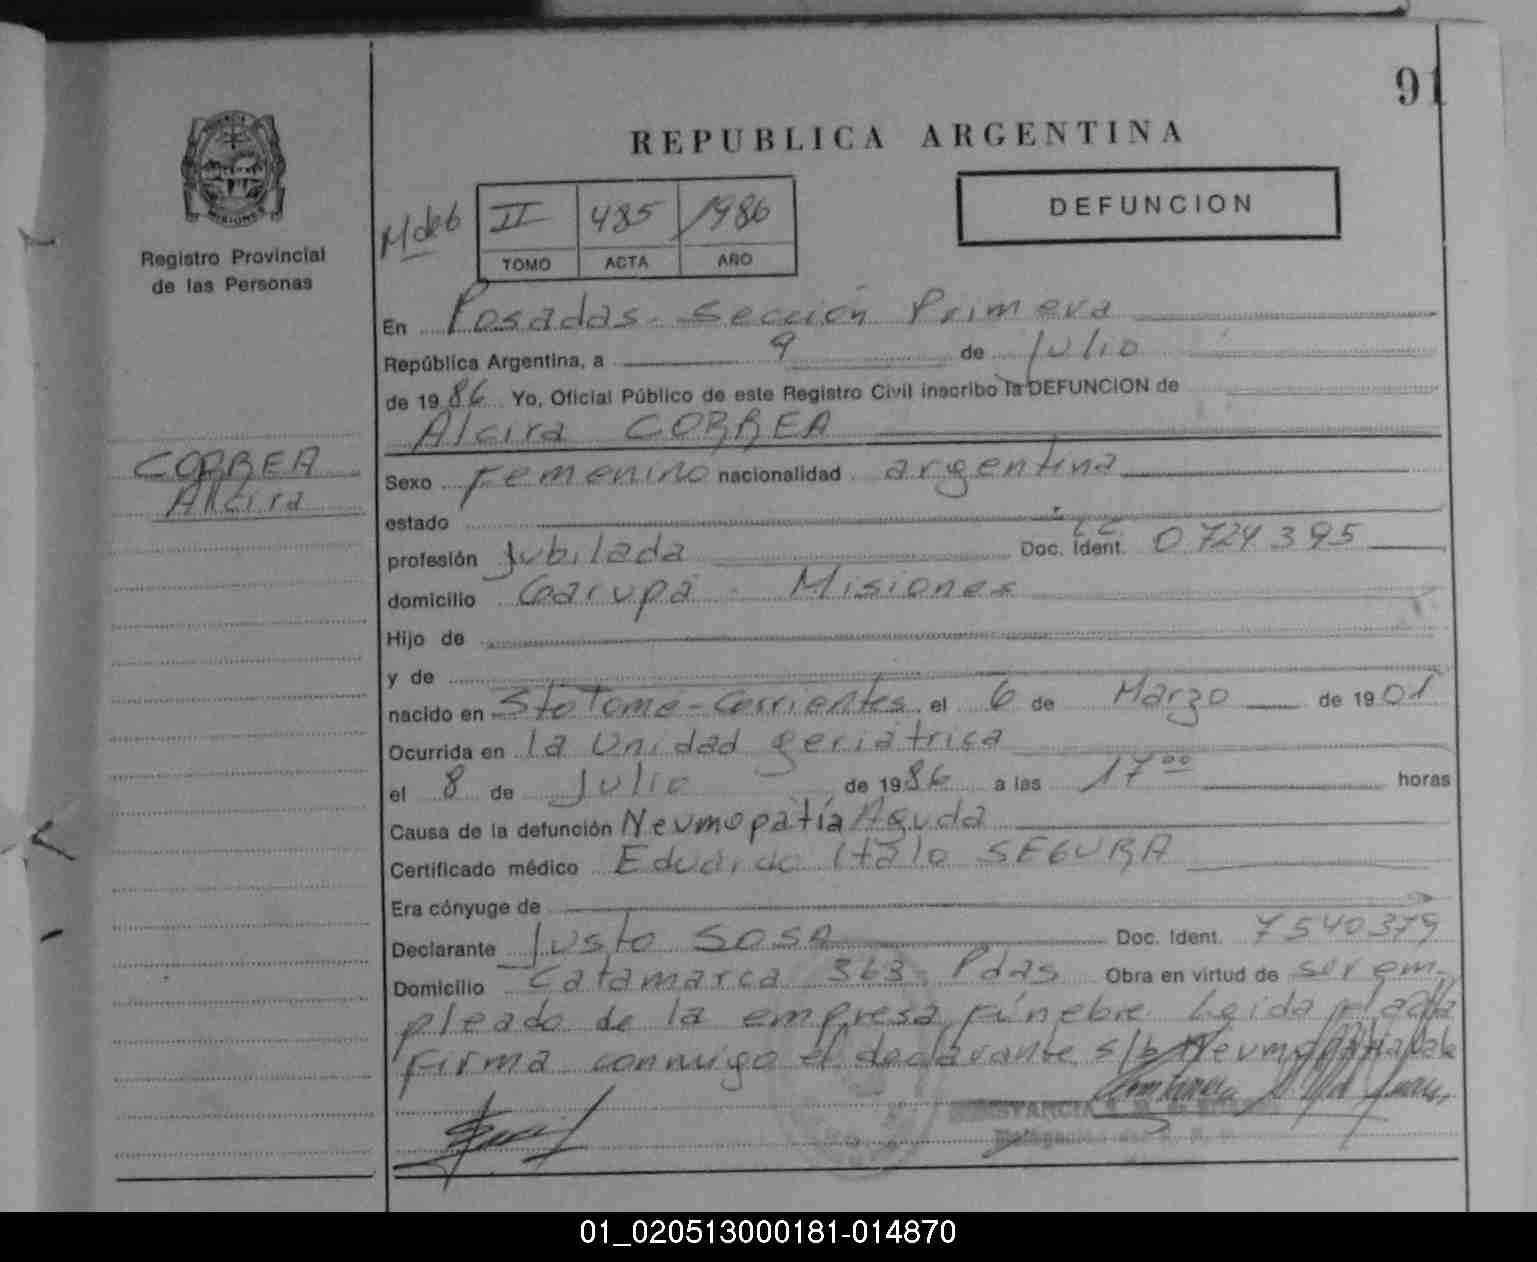 91
REPUBLICA ARGENTINA
MISIONES
Registro Provincial
de las Personas
II 485 1986
TOMO ACTA AÑO
DEFUNCION
En Posadas - Sección Primera
República Argentina, a 9 de Julio
de 1986 Yo, Oficial Público de este Registro Civil inscribo la DEFUNCION de
Alcira CORREA
CORREA
Alcira
Sexo Femenino nacionalidad argentina
estado
profesión Jubilada Doc. Ident. L.C. 0724395
domicilio Garupá - Misiones
Hijo de
y de
nacido en Sto Tomé - Corrientes el 6 de Marzo de 1901
Ocurrida en la Unidad geriátrica
el 8 de Julio de 1986 a las 17 00 horas
Causa de la defunción Neumopatía Aguda
Certificado médico Eduardo Italo SEGURA
Era cónyuge de
Declarante Justo SOSA Doc. Ident. 7540379
Domicilio Catamarca 363 - Pdas Obra en virtud de ser em-
pleado de la empresa Fúnebre Leida el acta
Firma conmigo el declarante s/b Neumopatia Vale
01_020513000181-014870